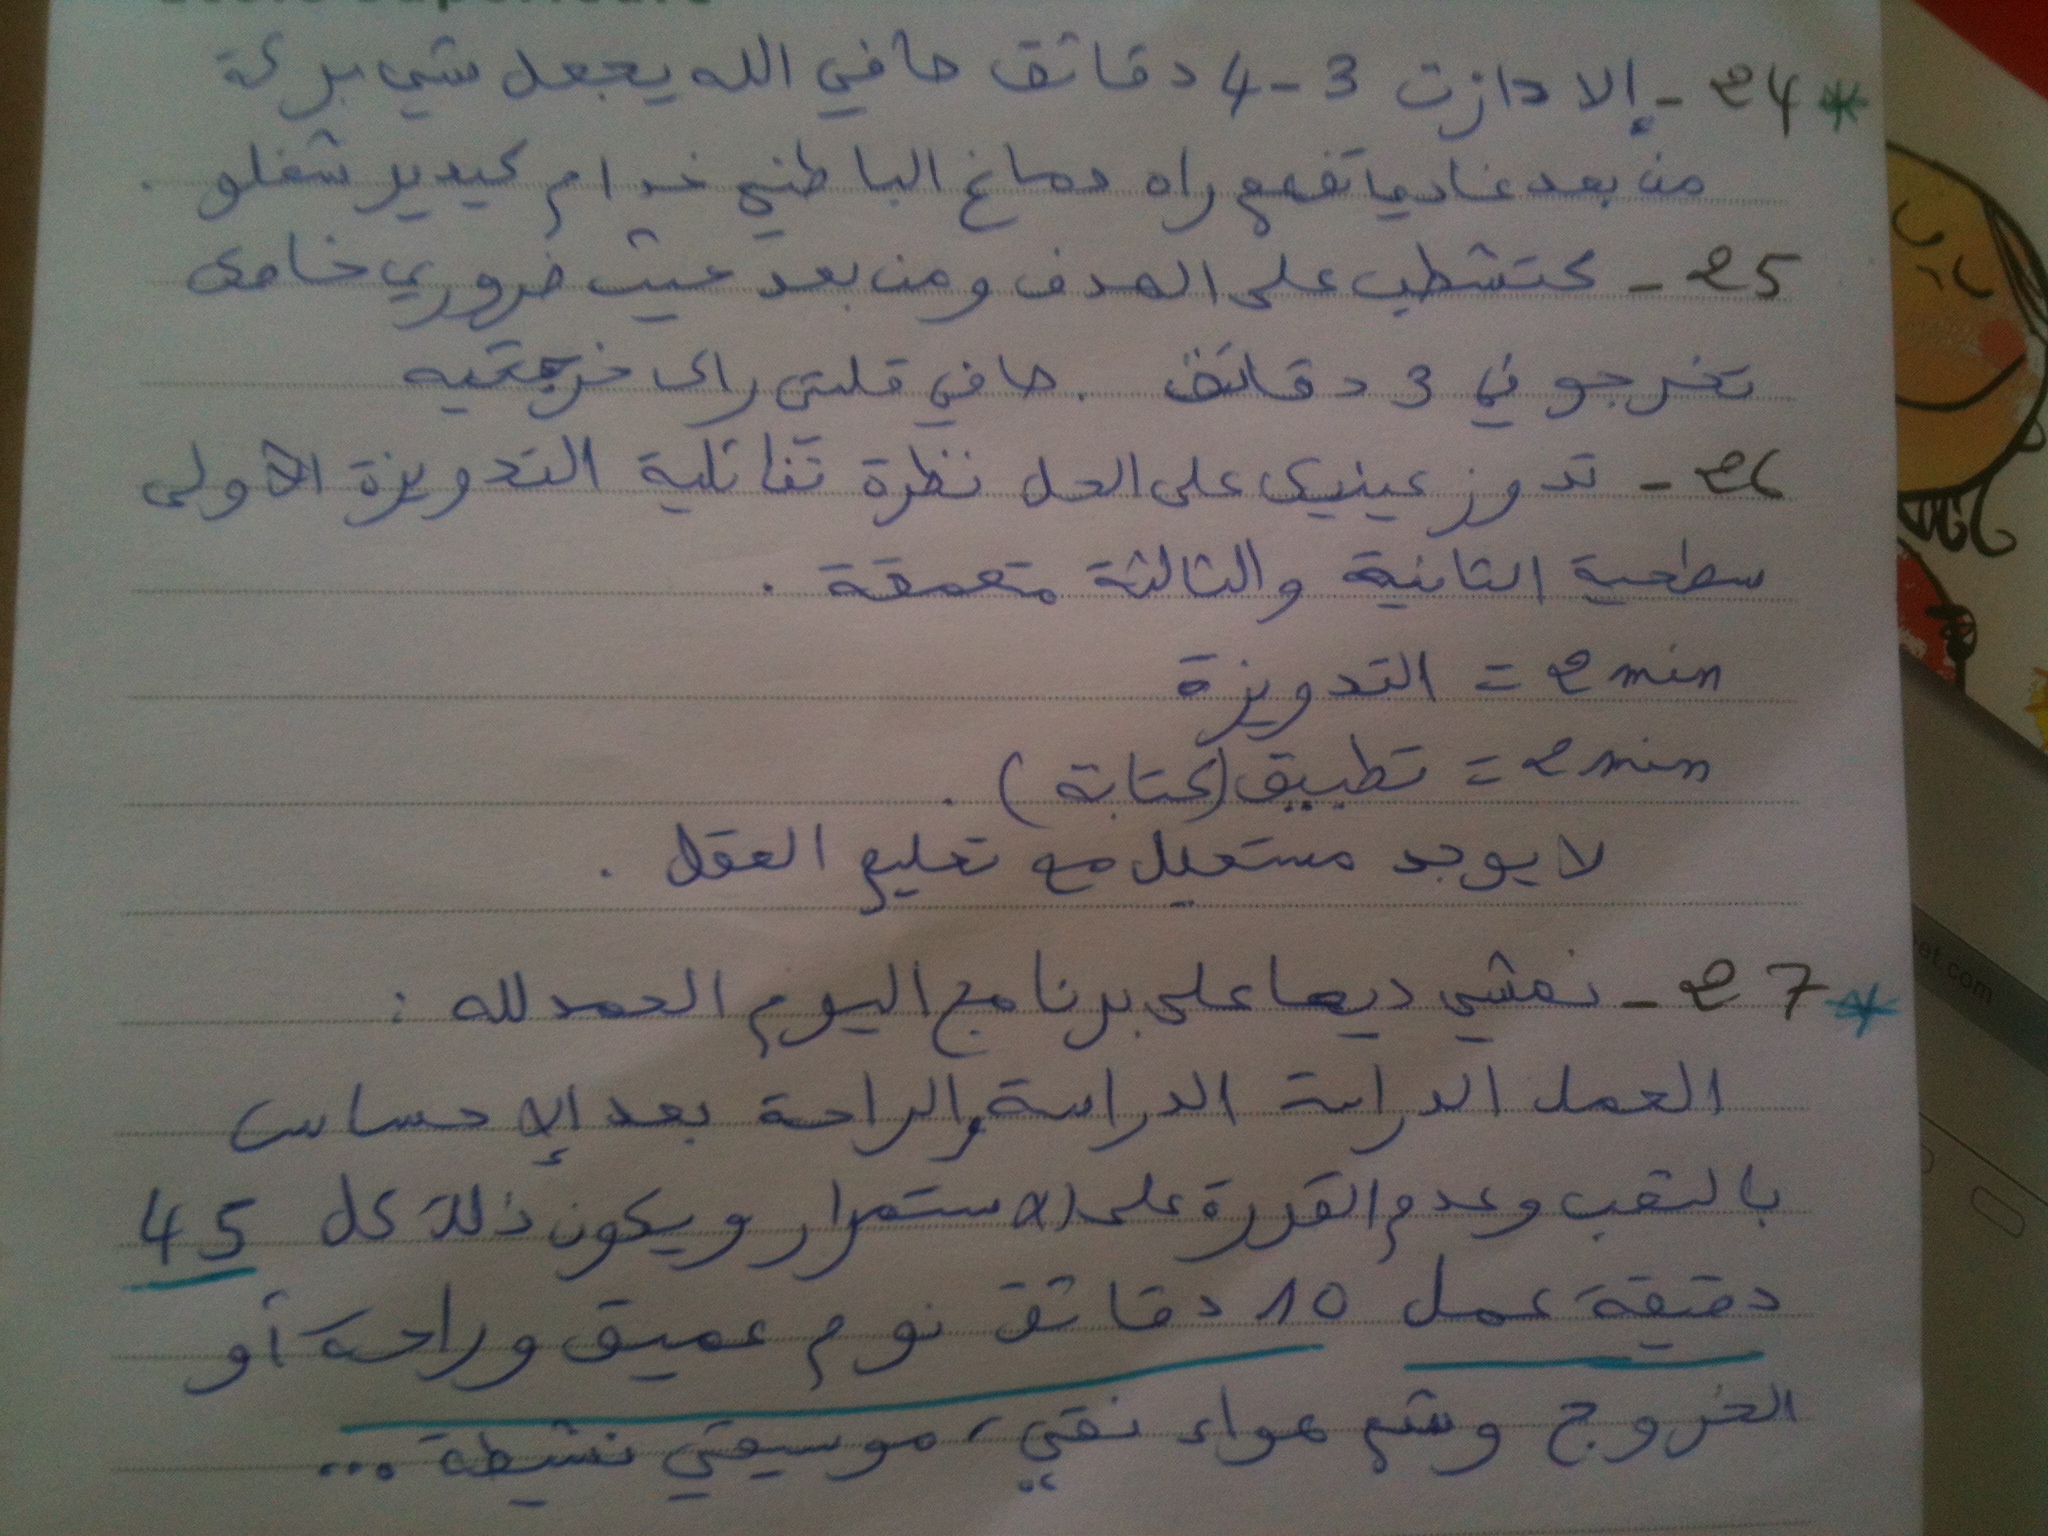 24 - إلا دازت 3-4 دقائق صافي الله يجعل شي بركة
من بعد غادياتفهم راه دماغ الباطني خدام كيدير شغلو .
25 - كتشطب على الهدف ومن بعد عيث ضروري خاصك
تخرجو في 3 دقائق . صافي قلتي راك خرجتيه
26 - تدوز عينيك على الحل نظرة تفائلية التدويزة الأولى
سطحية الثانية والثالثة متعمقة .
2 min = التدويزة
2 min = تطبيق (كتابة) .
لا يوجد مستحيل مع تعليم العقل .
27 - نمشي ديما على برنامج اليوم الحمد لله :
العمل الدراسة والراحة بعد الإحساس
بالتعب وعدم القدرة على الاستمرار ويكون ذلك كل 45
دقيقة عمل 10 دقائق نوم عميق وراحة أو
الخروج وشم هواء نقي، موسيقى نشيطة ...